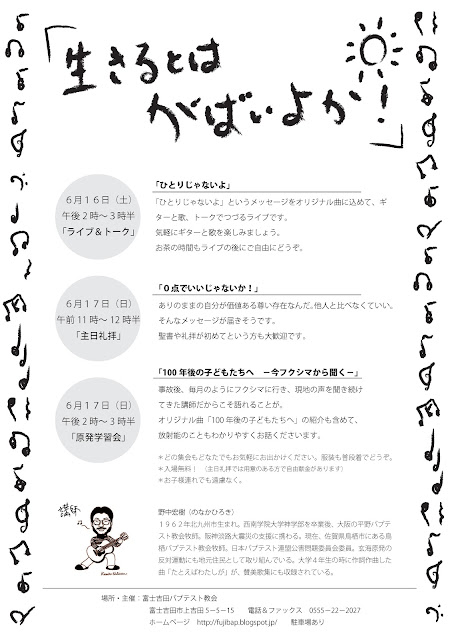 「生きるとは
がばいよか！」
６月１６日（土）
午後２時～３時半
「ライブ＆トーク」
「ひとりじゃないよ」
「ひとりじゃないよ」というメッセージをオリジナル曲に込めて、ギ
ターと歌、トークでつづるライブです。
気軽にギターと歌を楽しみましょう。
お茶の時間もライブの後にご自由にどうぞ。
６月１７日（日）
午前 11 時～ 12 時半
「主日礼拝」
「０点でいいじゃないか！」
ありのままの自分が価値ある尊い存在なんだ。他人と比べなくていい。
そんなメッセージが届きそうです。
聖書や礼拝が初めてという方も大歓迎です。
６月１７日（日）
午後２時～３時半
「原発学習会」
「100 年後の子どもたちへ　－今フクシマから聞く－」
事故後、毎月のようにフクシマに行き、現地の声を聞き続け
てきた講師だからこそ語れることが。
オリジナル曲「100 年後の子どもたちへ」の紹介も含めて、
放射能のこともわかりやすくお話くださいます。
＊どの集会もどなたでもお気軽にお出かけください。服装も普段着でどうぞ。
＊入場無料！　（主日礼拝では用意のある方で自由献金があります）
＊お子様連れでも遠慮なく。
講師
野中宏樹（のなかひろき）
１９６２年北九州市生まれ。西南学院大学神学部を卒業後、大阪の平野バプテ
スト教会牧師。阪神淡路大震災の支援に携わる。現在、佐賀県鳥栖市にある鳥
栖バプテスト教会牧師。日本バプテスト連盟公害問題委員会委員。玄海原発の
反対運動にも地元住民として取り組んでいる。大学４年生の時に作詞作曲した
曲「たとえばわたしが」が、賛美歌集にも収録されている。
場所・主催：富士吉田バプテスト教会
富士吉田市上吉田５−５−15　電話＆ファックス　0555－22－2027
ホームページ　http://fujibap.blogspot.jp/　駐車場あり